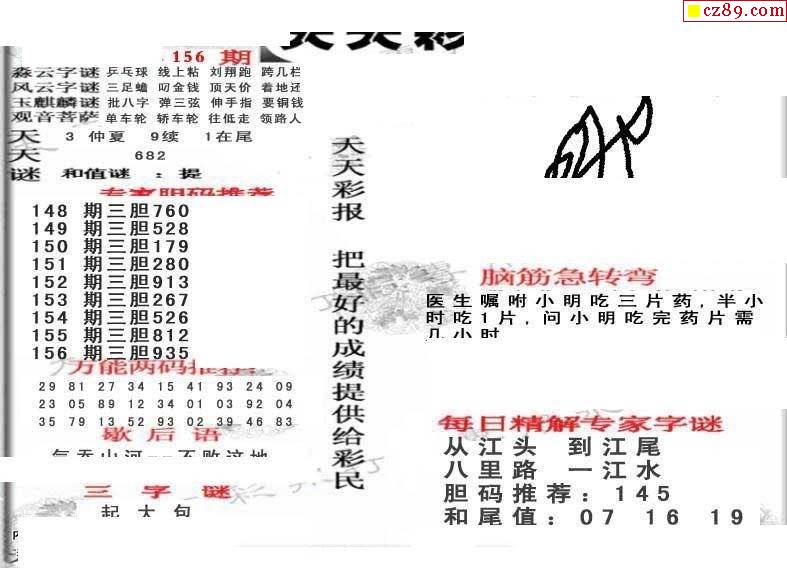 cz89.com
天天彩
156 期
淼云字谜 乒乓球 线上粘 刘翔跑 跨几栏
风云字谜 三足蛐 叼金钱 顶天价 着地还
玉麒麟谜 批八字 弹三弦 伸手指 要铜钱
观音菩萨 单车轮 轿车轮 往低走 领路人
天 3 仲夏 9续 1在尾
天 682
谜 和值谜 : 提
专家胆码推荐
148 期三胆760
149 期三胆528
150 期三胆179
151 期三胆280
152 期三胆913
153 期三胆267
154 期三胆526
155 期三胆812
156 期三胆935
万能两码推荐:
29 81 27 34 15 41 93 24 09
23 05 89 12 34 01 03 92 04
35 79 13 52 93 02 39 46 83
歇后语
气吞山河--不败这地
三字谜
起大包
天天彩报 把最好的成绩提供给彩民
脑筋急转弯
医生嘱咐小明吃三片药,半小
时吃1片,问小明吃完药片需
几小时
每日精解专家字谜
从江头 到江尾
八里路 一江水
胆码推荐: 145
和尾值: 07 16 19